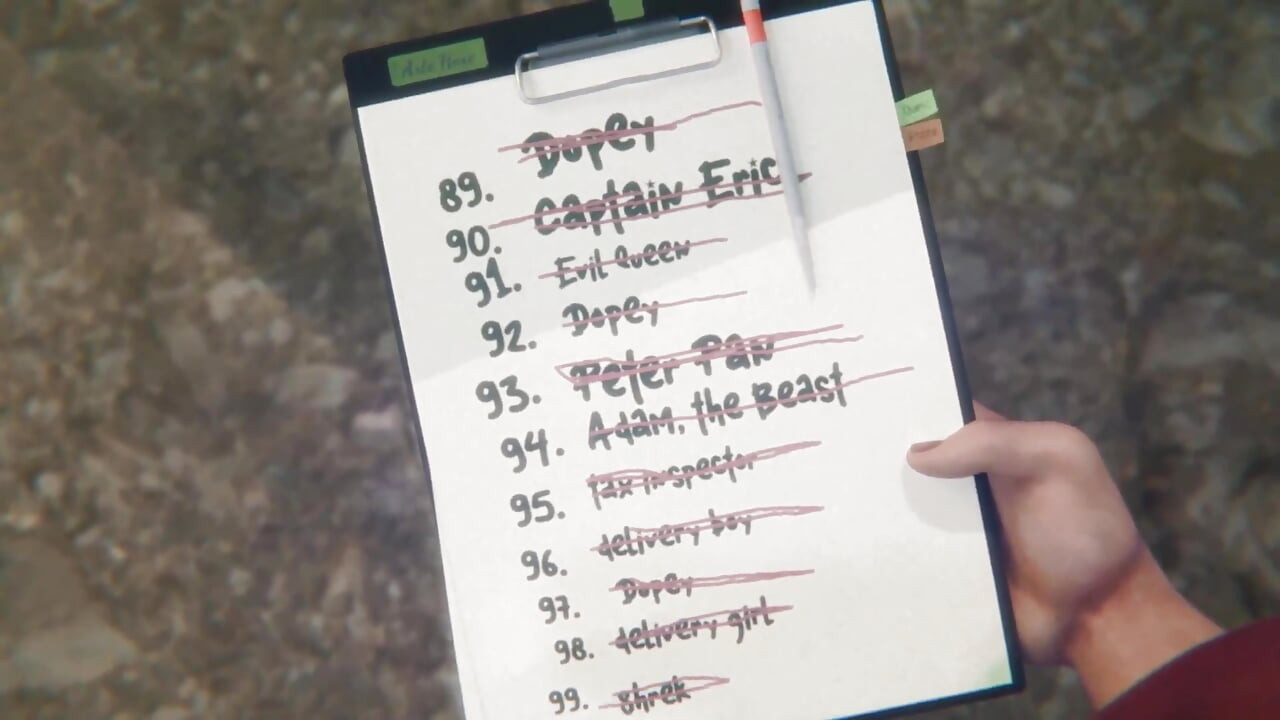 89. Dopey
90. Captain Eric
91. Evil Queen
92. Dopey
93. Peter Pan
94. Adam, the Beast
95. tax inspector
96. delivery boy
97. Dopey
98. delivery girl
99. Shrek